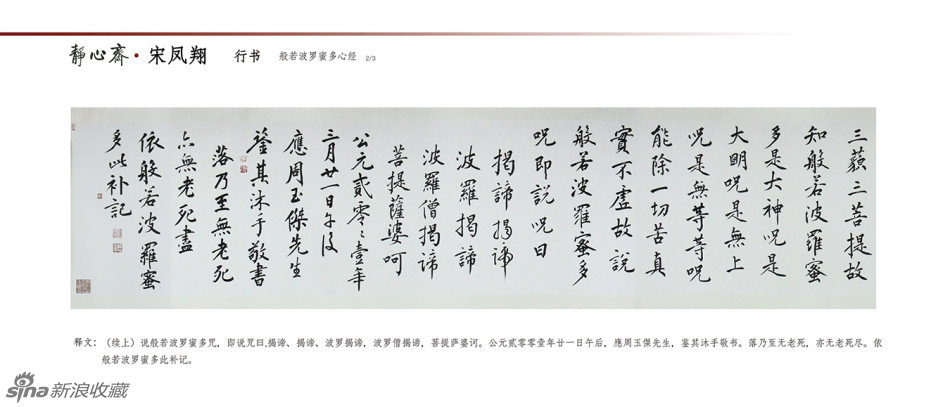 靜心齋·宋凤翔 行书 般若波罗蜜多心经 2/3
三藐三菩提故
知般若波羅蜜
多是大神呪是
大明呪是無上
呪是無等等呪
能除一切苦真
實不虛故說
般若波羅蜜多
呪即説呪曰
揭諦揭諦
波羅揭諦
波羅僧揭諦
菩提薩婆呵
公元貳零〻壹年
三月廿一日午後
應周玉傑先生
鉴其沐手敬書
落乃至無老死
亦無老死盡
依般若波羅蜜
多此补記
释文：（续上）说般若波罗蜜多咒，即说咒曰,揭谛、揭谛、波罗揭谛，波罗僧揭谛，菩提萨婆诃。公元贰零零壹年廿一日午后，應周玉傑先生，鉴其沐手敬书。落乃至无老死，亦无老死尽。依
般若波罗蜜多此补记。
sina新浪收藏